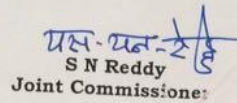 एस-एन-रेड्डी
S N Reddy
Joint Commissioner